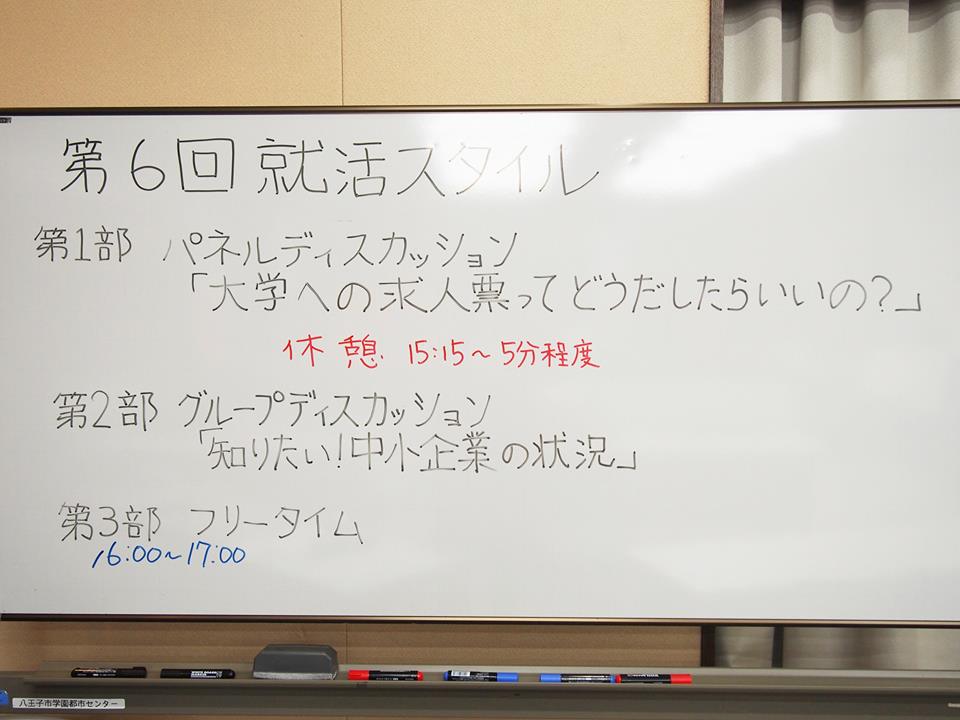 第6回 就活スタイル
第1部 パネルディスカッション
「大学への求人票ってどうだしたらいいの?」
休憩 15:15~5分程度
第2部 グループディスカッション
「知りたい!中小企業の状況」
第3部 フリータイム
16:00~17:00
八王子市学園都市センター